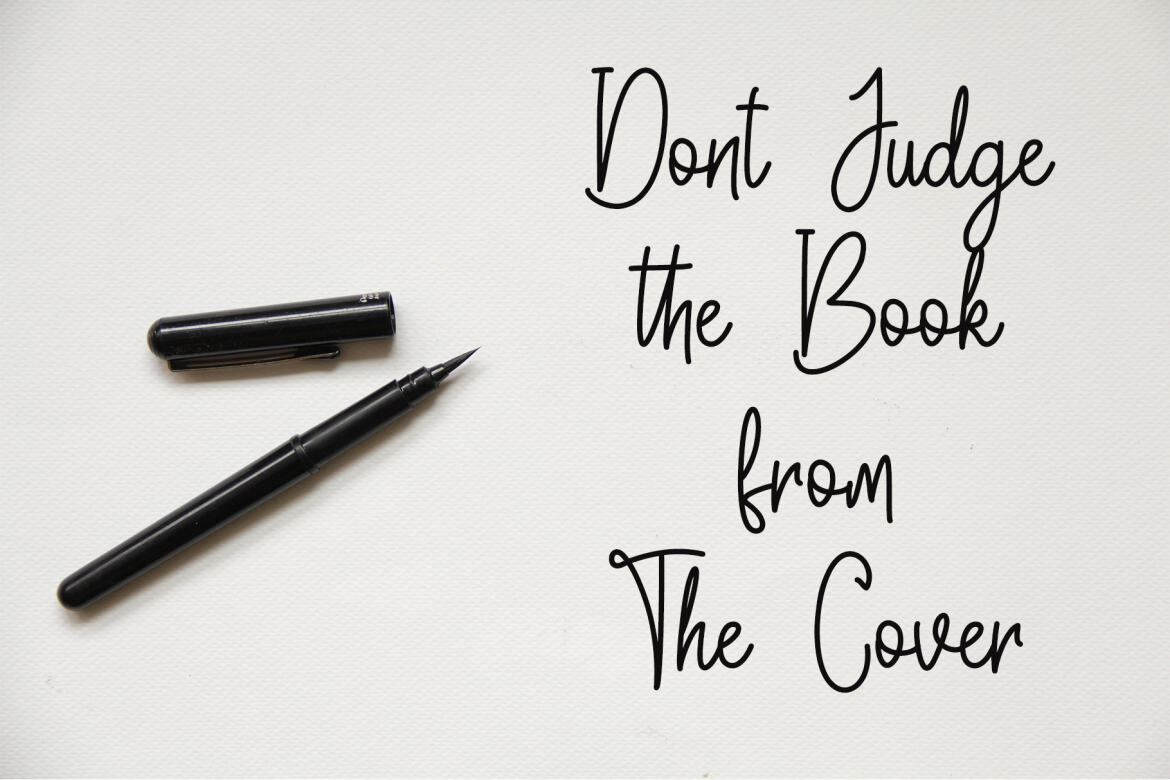 Dont Judge
the Book
from
The Cover